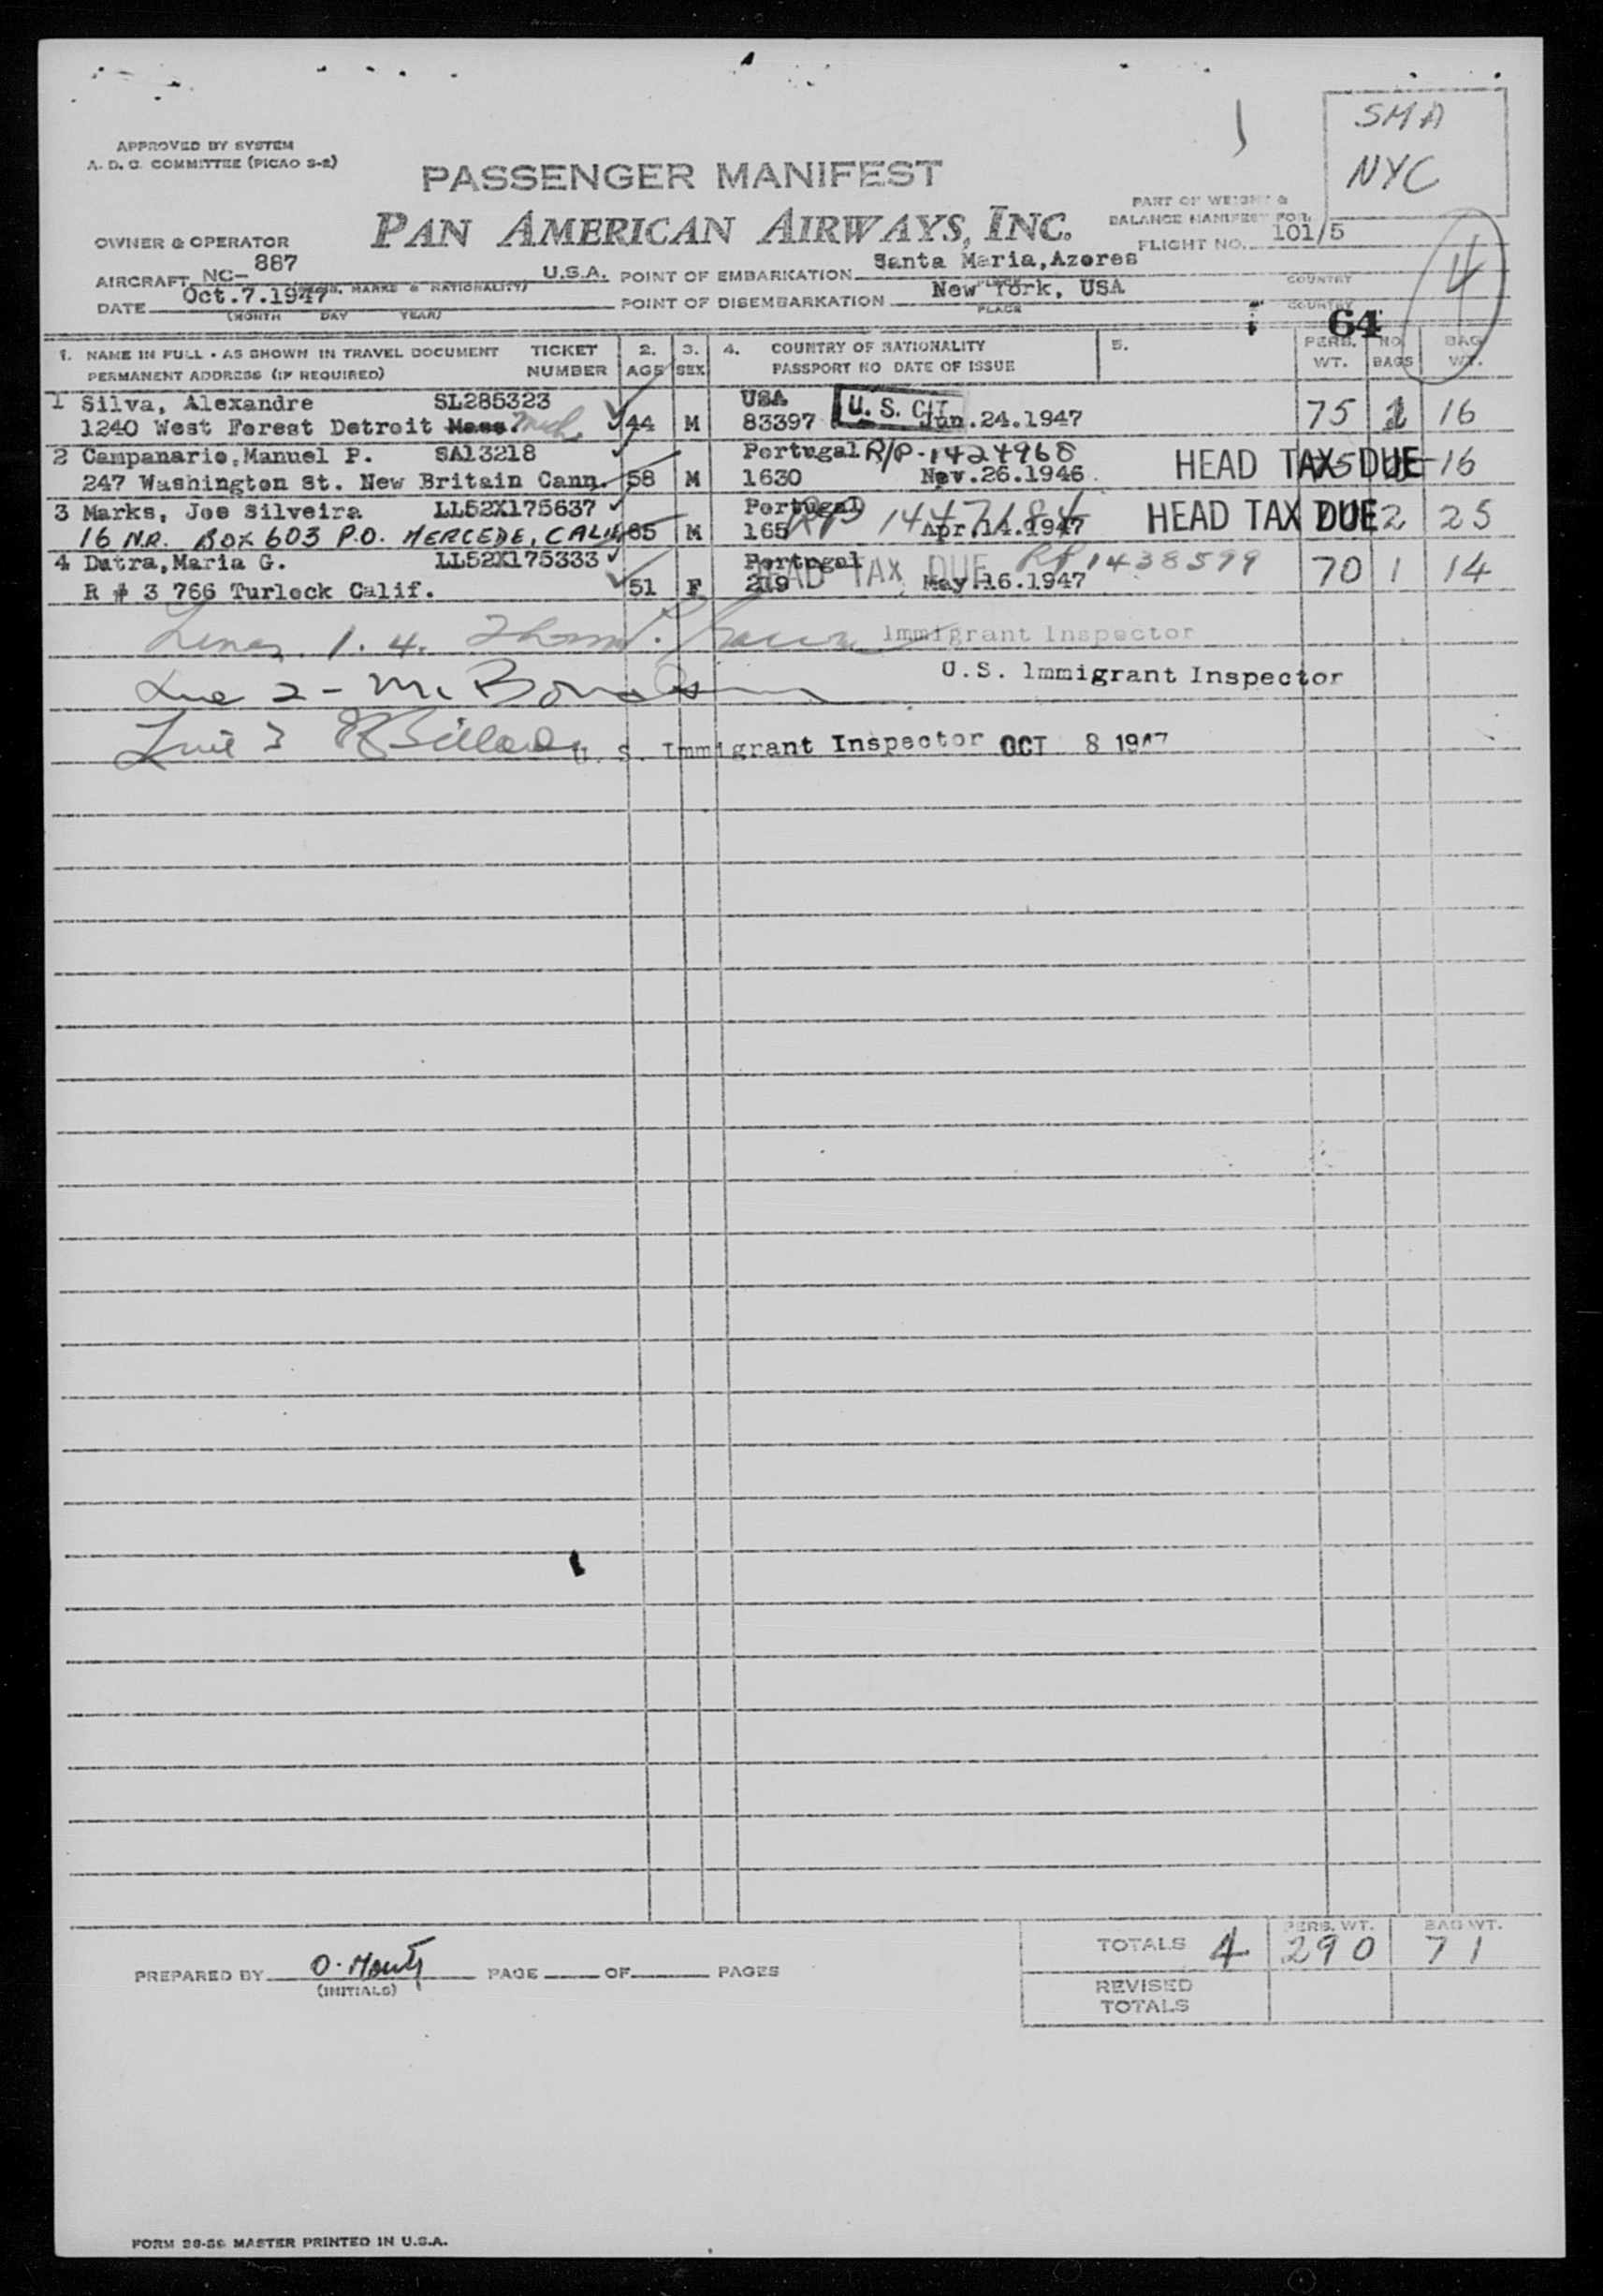 SMA
NYC
APPROVED BY SYSTEM
A. D. C. COMMITTEE (PICAO S-2)
PASSENGER MANIFEST
PAN AMERICAN AIRWAYS, INC.
PART OF WEIGHT &
BALANCE MANIFEST FOR
FLIGHT NO. 101/5
OWNER & OPERATOR
AIRCRAFT NC- 887 U.S.A.
MARKS & NATIONALITY)
POINT OF EMBARKATION Santa Maria,Azores
PLACE COUNTRY
DATE Oct.7.1947
(MONTH DAY YEAR)
POINT OF DISEMBARKATION New York, USA
PLACE COUNTRY
64
4
1. NAME IN FULL - AS SHOWN IN TRAVEL DOCUMENT TICKET 2. 3. 4. COUNTRY OF NATIONALITY 5. PERS. NO. BAG
PERMANENT ADDRESS (IF REQUIRED) NUMBER AGE SEX PASSPORT NO DATE OF ISSUE WT. BAGS WT.
1 Silva, Alexandre SL285323 USA U. S. CIT
1240 West Forest Detroit Mass. Mich 44 M 83397 Jun.24.1947 75 16
2 Campanario,Manuel P. SA13218 Portugal R/P-1424968
247 Washington St. New Britain Cann. 58 M 1630 Nov.26.1946 HEAD TAX DUE 16
3 Marks, Joe Silveira LL52X175637 Portugal RP 1447184
16 N.R. BOX 603 P.O. MERCEDE, CALIF 65 M 165 Apr.14.1947 HEAD TAX DUE 2 25
4 Dutra,Maria G. LL52X175333 Portugal HEAD TAX DUE RP 1438599
R # 3 766 Turlock Calif. 51 F 219 May.16.1947 70 1 14
Lines 1. 4. Immigrant Inspector
Line 2 - U.S. Immigrant Inspector
Line 3 U. S. Immigrant Inspector OCT 8 1947
TOTALS 4 PERS. WT. 290 BAG WT. 71
PREPARED BY PAGE OF PAGES
(INITIALS)
REVISED
TOTALS
FORM MASTER PRINTED IN U.S.A.